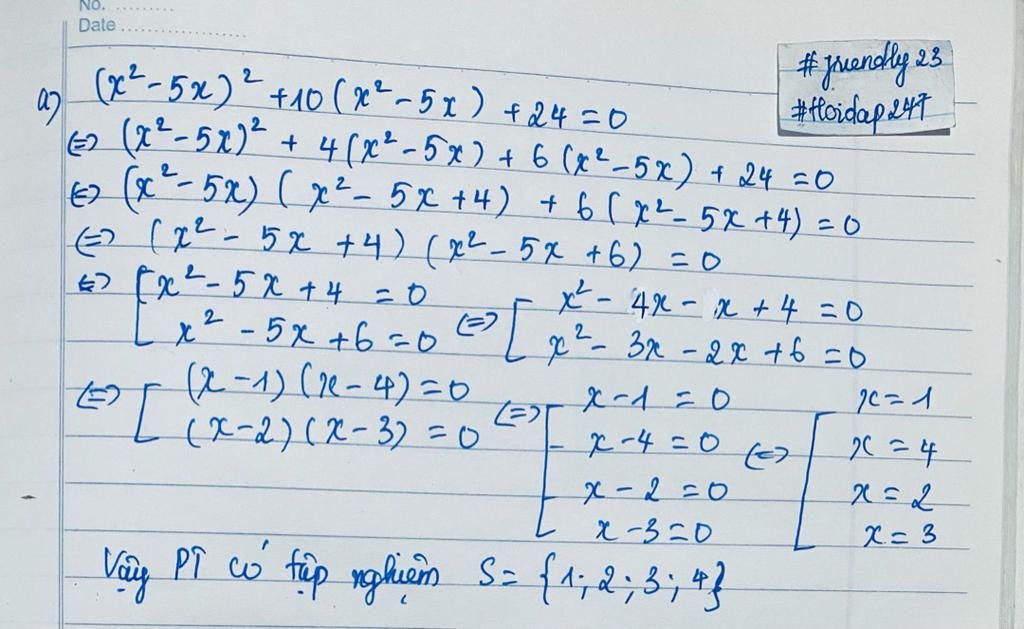 No. ..........
Date ....................
# friendly 23
#Hoidap247
a) (x² - 5x)² + 10(x² - 5x) + 24 = 0
⇔ (x² - 5x)² + 4(x² - 5x) + 6(x² - 5x) + 24 = 0
⇔ (x² - 5x)(x² - 5x + 4) + 6(x² - 5x + 4) = 0
⇔ (x² - 5x + 4)(x² - 5x + 6) = 0
⇔ [ x² - 5x + 4 = 0 ⇔ [ x² - 4x - x + 4 = 0
x² - 5x + 6 = 0 x² - 3x - 2x + 6 = 0
⇔ [ (x - 1)(x - 4) = 0 ⇔ [ x - 1 = 0 ⇔ [ x = 1
(x - 2)(x - 3) = 0 x - 4 = 0 x = 4
x - 2 = 0 x = 2
x - 3 = 0 x = 3
Vậy PT có tập nghiệm S = {1; 2; 3; 4}